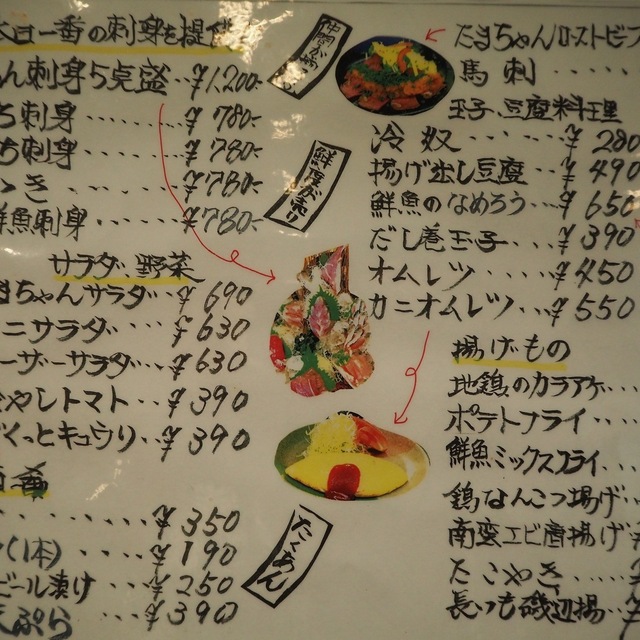 一番の刺身を提供
刺身5点盛…¥1,200-
刺身……¥780-
刺身……¥780-
き……¥780-
鮮魚刺身…¥780-
サラダ、野菜
ちゃんサラダ…¥690
ニサラダ……¥630
ーザーサラダ…¥630
やしトマト…¥390
くっとキュウリ…¥390
……¥350
(1本)……¥190
ビール漬け…¥250
天ぷら……¥390
鮮度が売り
たくあん
たまちゃんローストビーフ
馬刺……
玉子、豆腐料理
冷奴……¥280
揚げ出し豆腐…¥490
鮮魚のなめろう…¥650
だし巻玉子…¥390
オムレツ……¥450
カニオムレツ…¥550
揚げもの
地鶏のカラアゲ…
ポテトフライ……
鮮魚ミックスフライ…
鶏なんこつ揚げ…
南蛮エビ唐揚げ…¥
たこやき……
長つも磯辺揚…¥